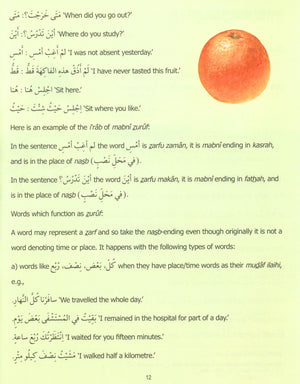 مَتَى خَرَجْتَ؟: مَتَى 'When did you go out?'
أَيْنَ تَدْرُسُ؟: أَيْنَ 'Where do you study?'
لَمْ أَغِبْ أَمْسِ : أَمْسِ 'I was not absent yesterday.'
لَمْ أَذُقْ هذِهِ الفَاكِهَةَ قَطُّ : قَطُّ 'I have never tasted this fruit.'
اِجْلِسْ هُنَا : هُنَا 'Sit here.'
اِجْلِسْ حَيْثُ شِئْتَ : حَيْثُ 'Sit where you like.'
Here is an example of the i'rāb of mabnī ẓurūf:
In the sentence لَمْ أَغِبْ أَمْسِ the word أَمْسِ is ẓarfu zamān, it is mabnī ending in kasrah,
and is in the place of naṣb (فِي مَحَلِّ نَصْبٍ).
In the sentence أَيْنَ تَدْرُسُ؟ the word أَيْنَ is ẓarfu makān, it is mabnī ending in fatḥah, and
is in the place of naṣb (فِي مَحَلِّ نَصْبٍ).
Words which function as ẓurūf:
A word may represent a ẓarf and so take the naṣb-ending even though originally it is not a
word denoting time or place. It happens with the following types of words:
a) words like كُلّ، بَعْض، نِصْف، رُبْع when they have place/time words as their muḍāf ilaihi,
e.g.,
سَافَرْنَا كُلَّ النَّهَارِ. 'We travelled the whole day.'
بَقِيْتُ فِي الْمُسْتَشْفَى بَعْضَ يَوْمٍ. 'I remained in the hospital for part of a day.'
اِنْتَظَرْتُكَ رُبْعَ سَاعَةٍ. 'I waited for you fifteen minutes.'
مَشَيْتُ نِصْفَ كِيلُو مِتْرٍ. 'I walked half a kilometre.'
12